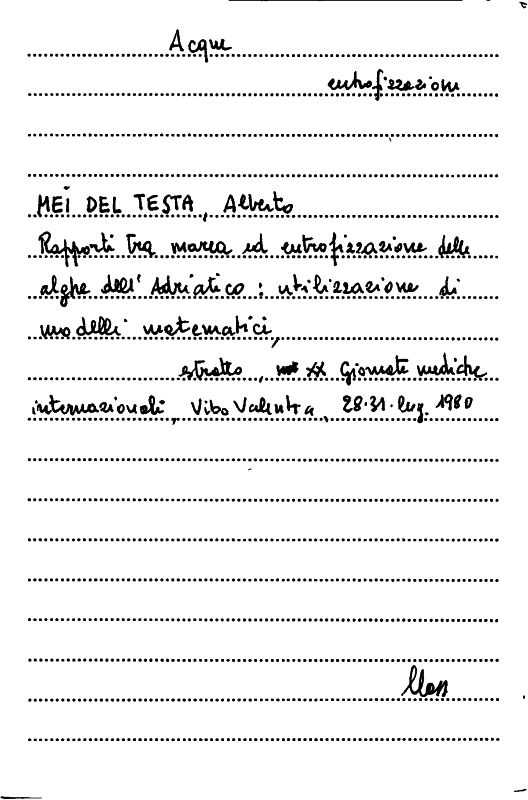 Acque
eutrofizzazione
MEI DEL TESTA, Alberto
Rapporti tra marea ed eutrofizzazione delle
alghe dell'Adriatico: utilizzazione di
modelli matematici,
estratto, XX Giornate mediche
internazionali, Vibo Valentia, 28-31 lug. 1980